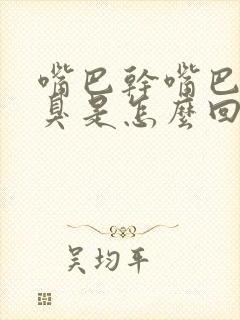 嘴巴幹嘴巴
臭是怎麼回
吴均平